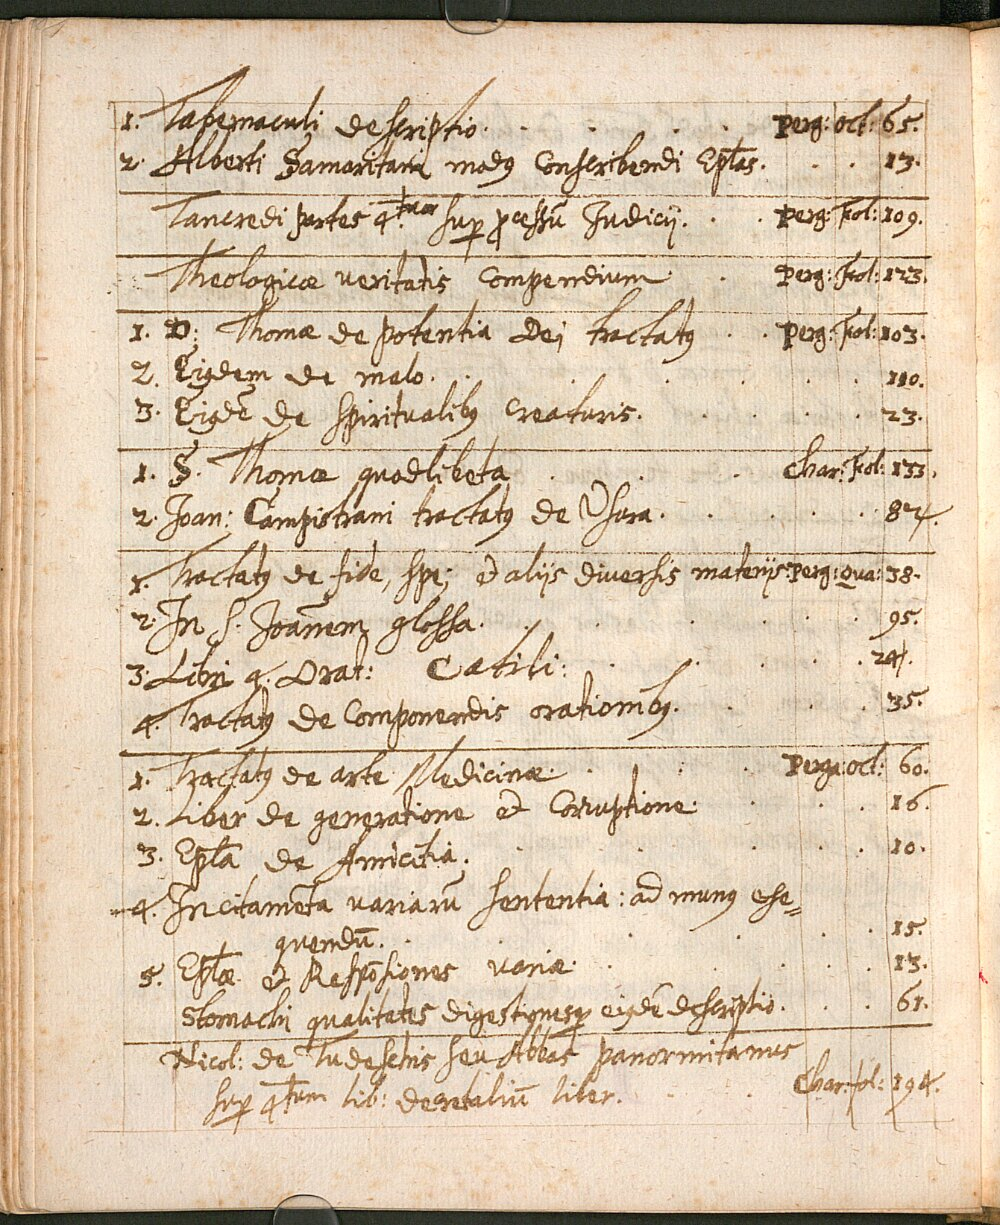 1. Tabernaculi descriptio. Perg: Oct: 65.
2. Alberti Samaritani modꝰ conscribendi Epl̃as. 13.
Tancredi partes 4.tuor sup ꝓcessũ Judicij. Perg: Fol: 109.
Theologicæ veritatis compendium Perg: Fol: 123.
1. D: Thomæ de potentia Dej tractatꝰ Perg: Fol: 103.
2. Eiꝰdem de malo. 110.
3. Eiꝰdẽ de spiritualibꝰ creaturis. 23.
1. S. Thomæ quodlibeta Char: Fol: 133.
2. Joan: Campistrani tractatꝰ de Vsura. 84.
1. Tractatꝰ de fide, spe, et alijs diversis materijs. Perg: Qua: 38.
2. In S. Joañem glossa. 95.
3. Libri 4. Orat: Catili: 24.
4. Tractatꝰ de componendis orationibꝰ. 35.
1. Tractatꝰ de arte Medicinæ. Perg: oct: 60.
2. Liber de generatione et Corruptione. 16.
3. Epl̃a de Amicitia. 10.
4. Incitamẽta variarũ sententia: ad munꝰ exse=
quendũ. 15.
5. Epl̃æ et Respõsiones variæ. 13.
Stomachi qualitates digestionisqꝫ eiꝰdẽ descriptio. 61.
Nicol: de Tudeschis seu Abbas panormitanus
sup 4tum lib: decretaliũ liber. Char: fol: 194.